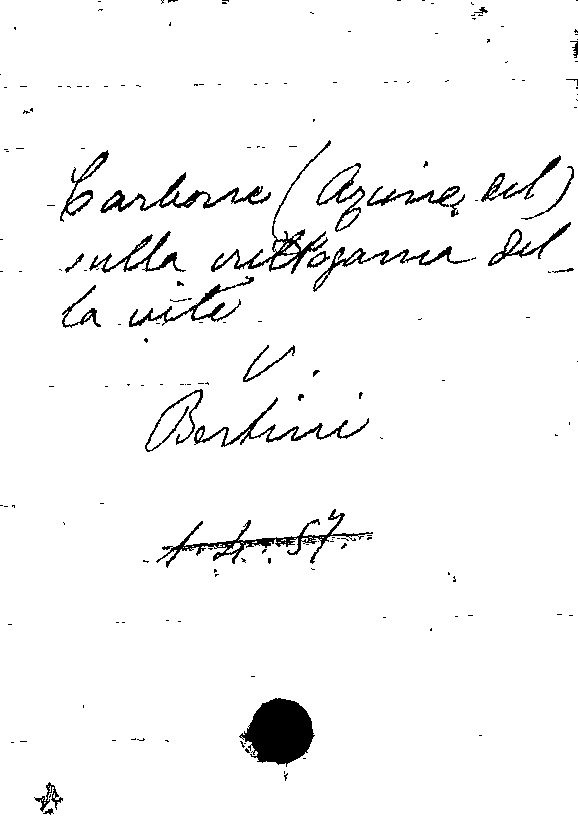 Carbone (Azione del)
sulla crittogama del_
la vite
V.
Bertini
1.4.57.